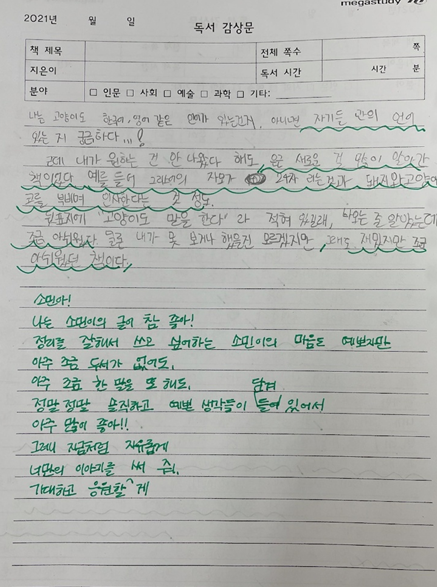 megastudy
2021년 월 일 독서 감상문
책 제목 전체 쪽수 쪽
지은이 독서 시간 시간 분
분야 □ 인문 □ 사회 □ 예술 □ 과학 □ 기타:
나는 고양이도 한국어, 영어 같은 언어가 있는건지, 아니면 자기들 만의 언어
있는 지 궁금하다...!
근데 내가 원하는 건 안 나왔다 해도, 은근 새로운 걸 많이 알아간
책이었다 예를 들어 그레이의 자모가 24자 라는것과 돼지와고양이
코를 부비며 인사한다는 것 정도.
뒷표지에 '고양이도 말을 한다' 라 적혀 있길래, 나오는 줄 알았는데
조금 아쉬웠다 물론 내가 못 보거나 해을진 모르겠지만, 그래도 재밌지만 조금
아쉬웠던 책이다.
소민아!
나는 소민이의 글이 참 좋아!
정리를 잘해서 쓰고 싶어하는 소민이의 마음도 예쁘지만
아주 조금 두서가 없어도,
아주 조금 한 말을 또 해도, 담겨
정말정말 솔직하고 예쁜 생각들이 들어 있어서
아주 많이 좋아!!
그러니 지금처럼 자유롭게
너만의 이야기를 써 줘.
기대하고 응원할게